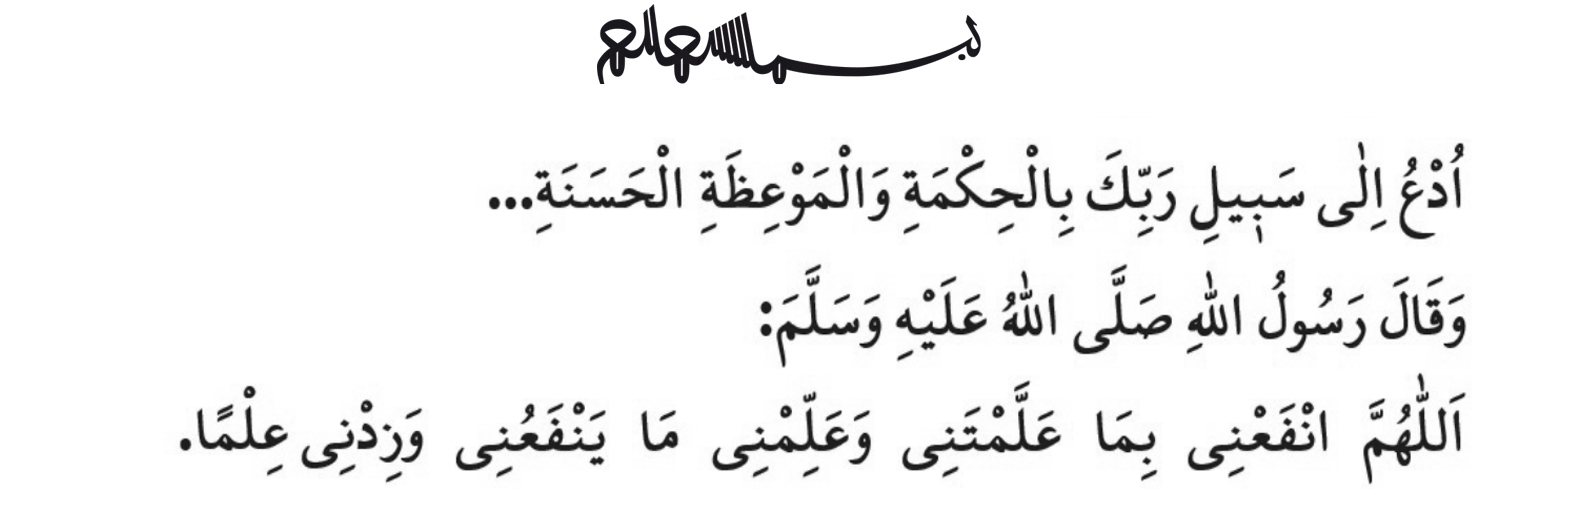 بسم الله الرحمن الرحيم
اُدْعُ اِلٰى سَبٖيلِ رَبِّكَ بِالْحِكْمَةِ وَالْمَوْعِظَةِ الْحَسَنَةِ...
وَقَالَ رَسُولُ اللّٰهِ صَلَّى اللّٰهُ عَلَيْهِ وَسَلَّمَ:
اَللّٰهُمَّ انْفَعْنِى بِمَا عَلَّمْتَنِى وَعَلِّمْنِى مَا يَنْفَعُنِى وَزِدْنِى عِلْمًا.